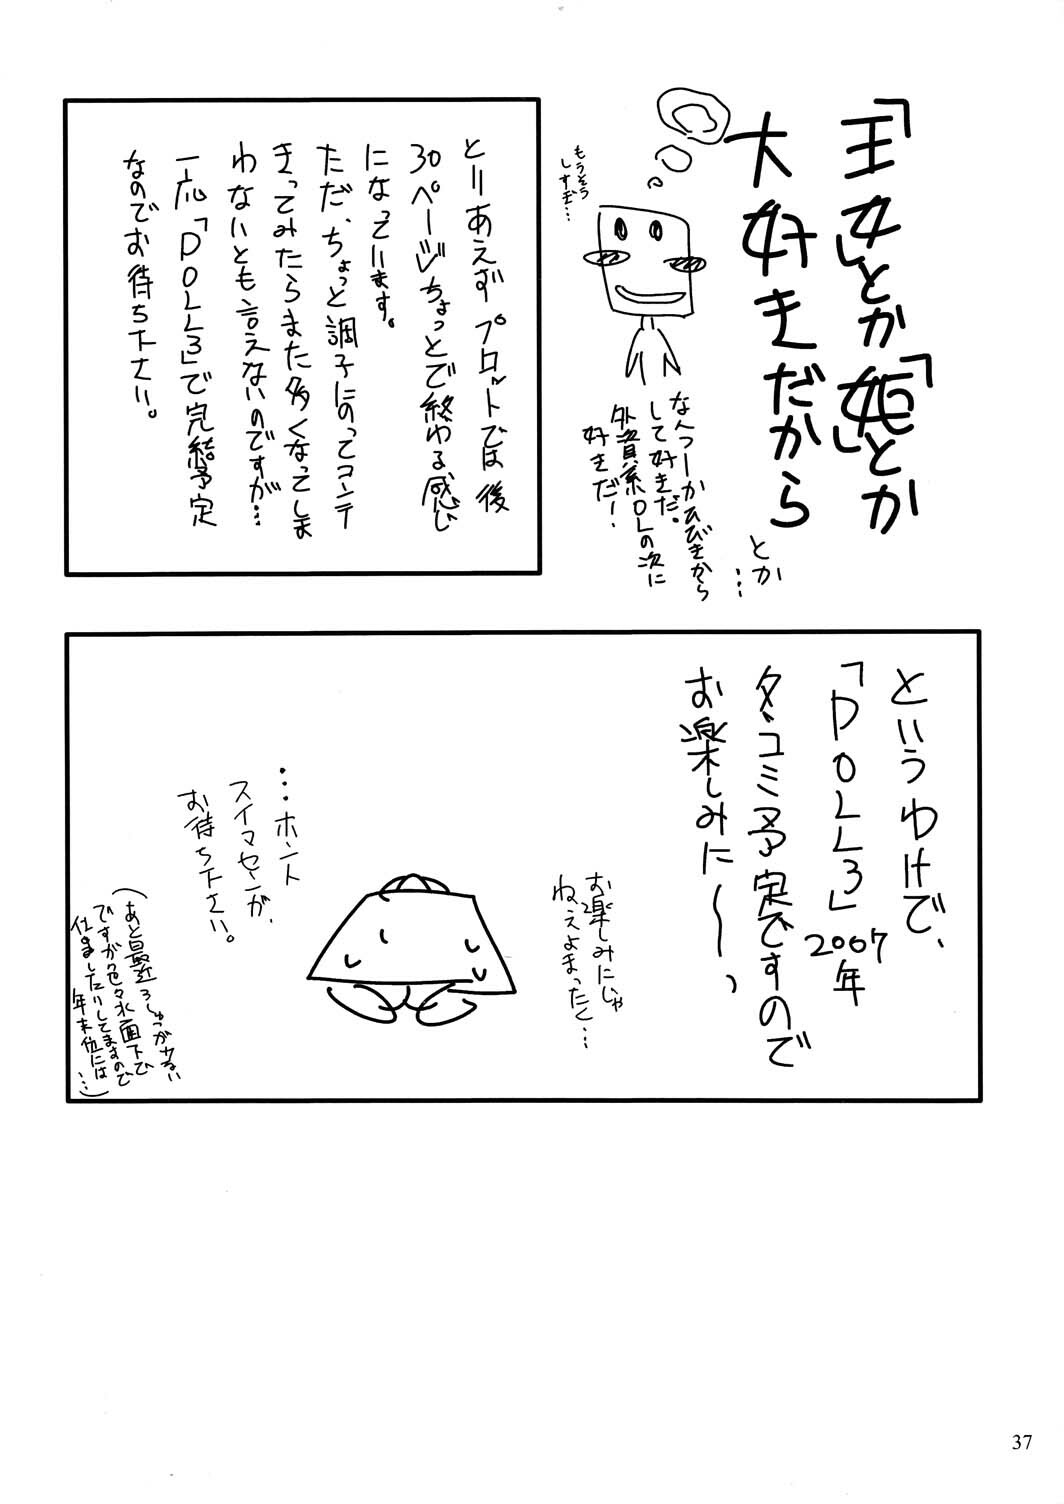 「王女」とか「姫」とか
大好きだから
とか
…
もうそう
しすぎ…
なんつーかひびきから
して好きだ。
外資系OLの次に
好きだー！
とりあえずプロットでは後
30ページちょっとで終わる感じ
になっています。
ただ、ちょっと調子にのってコンテ
きってみたらまた多くなってしま
わないとも言えないのですが…
一応「DOLL3」で完結予定
なのでお待ち下さい。
というわけで、
「DOLL3」2007年
夏コミ予定ですので
お楽しみに〜っ
お楽しみにじゃ
ねえよまったく…
…ホント
スイマセンが、
お待ち下さい。
(あと最近ろしゅつが少ない
ですが色々水面下で
仕込ましたりしてますので
年末位には
…)
37